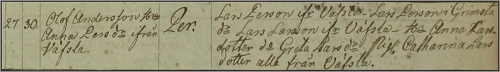 27 30. Olof Andersson Hu Anna Pers dr ifrån Väfsla. Per. Lars Person ifr Väfsla - Lars Person i Grimsla
ds Lars Person ifr Väfsla - Hu Anna Lars
dotter ds Greta Lars dr Pig: Catharina Lars
dotter alla från Väfsla.